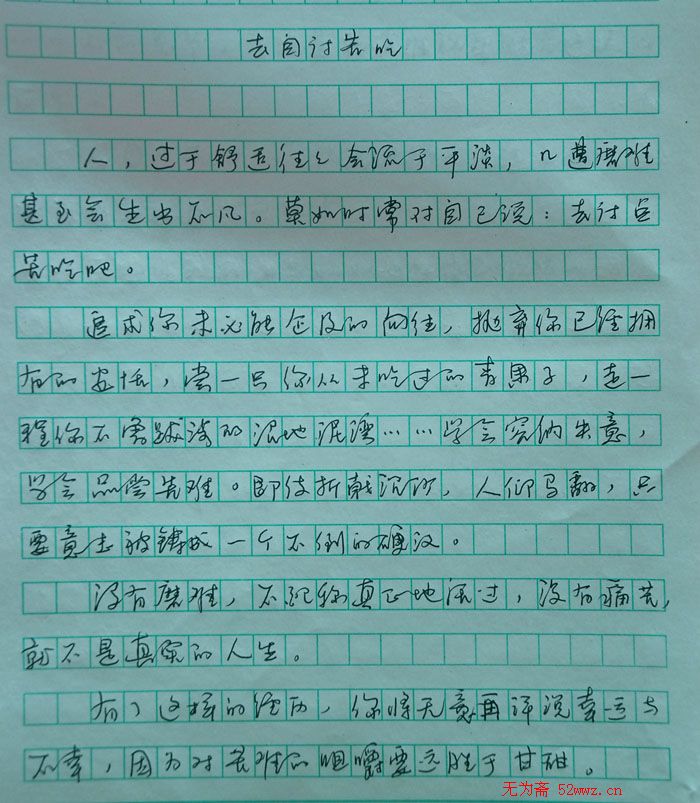 去自讨苦吃
人，过于舒适往往会流于平淡，几遭磨难
甚至会生出不凡。莫如时常对自己说：去讨点
苦吃吧。
追求你未必能企及的向往，抛弃你已经拥
有的安恬，尝一只你从未吃过的青果子，走一
程你不需跋涉的泥地泥潭……学会容纳失意，
学会品尝苦难。即使折戟沉沙，人仰马翻，只
要意志被铸成一个不倒的硬汉。
没有磨难，不能称真正地活过，没有痛苦，
就不是真实的人生。
有了这样的经历，你将无意再评说幸运与
不幸，因为对苦难的咀嚼要远胜于甘甜。
无为斋 52wwz.cn